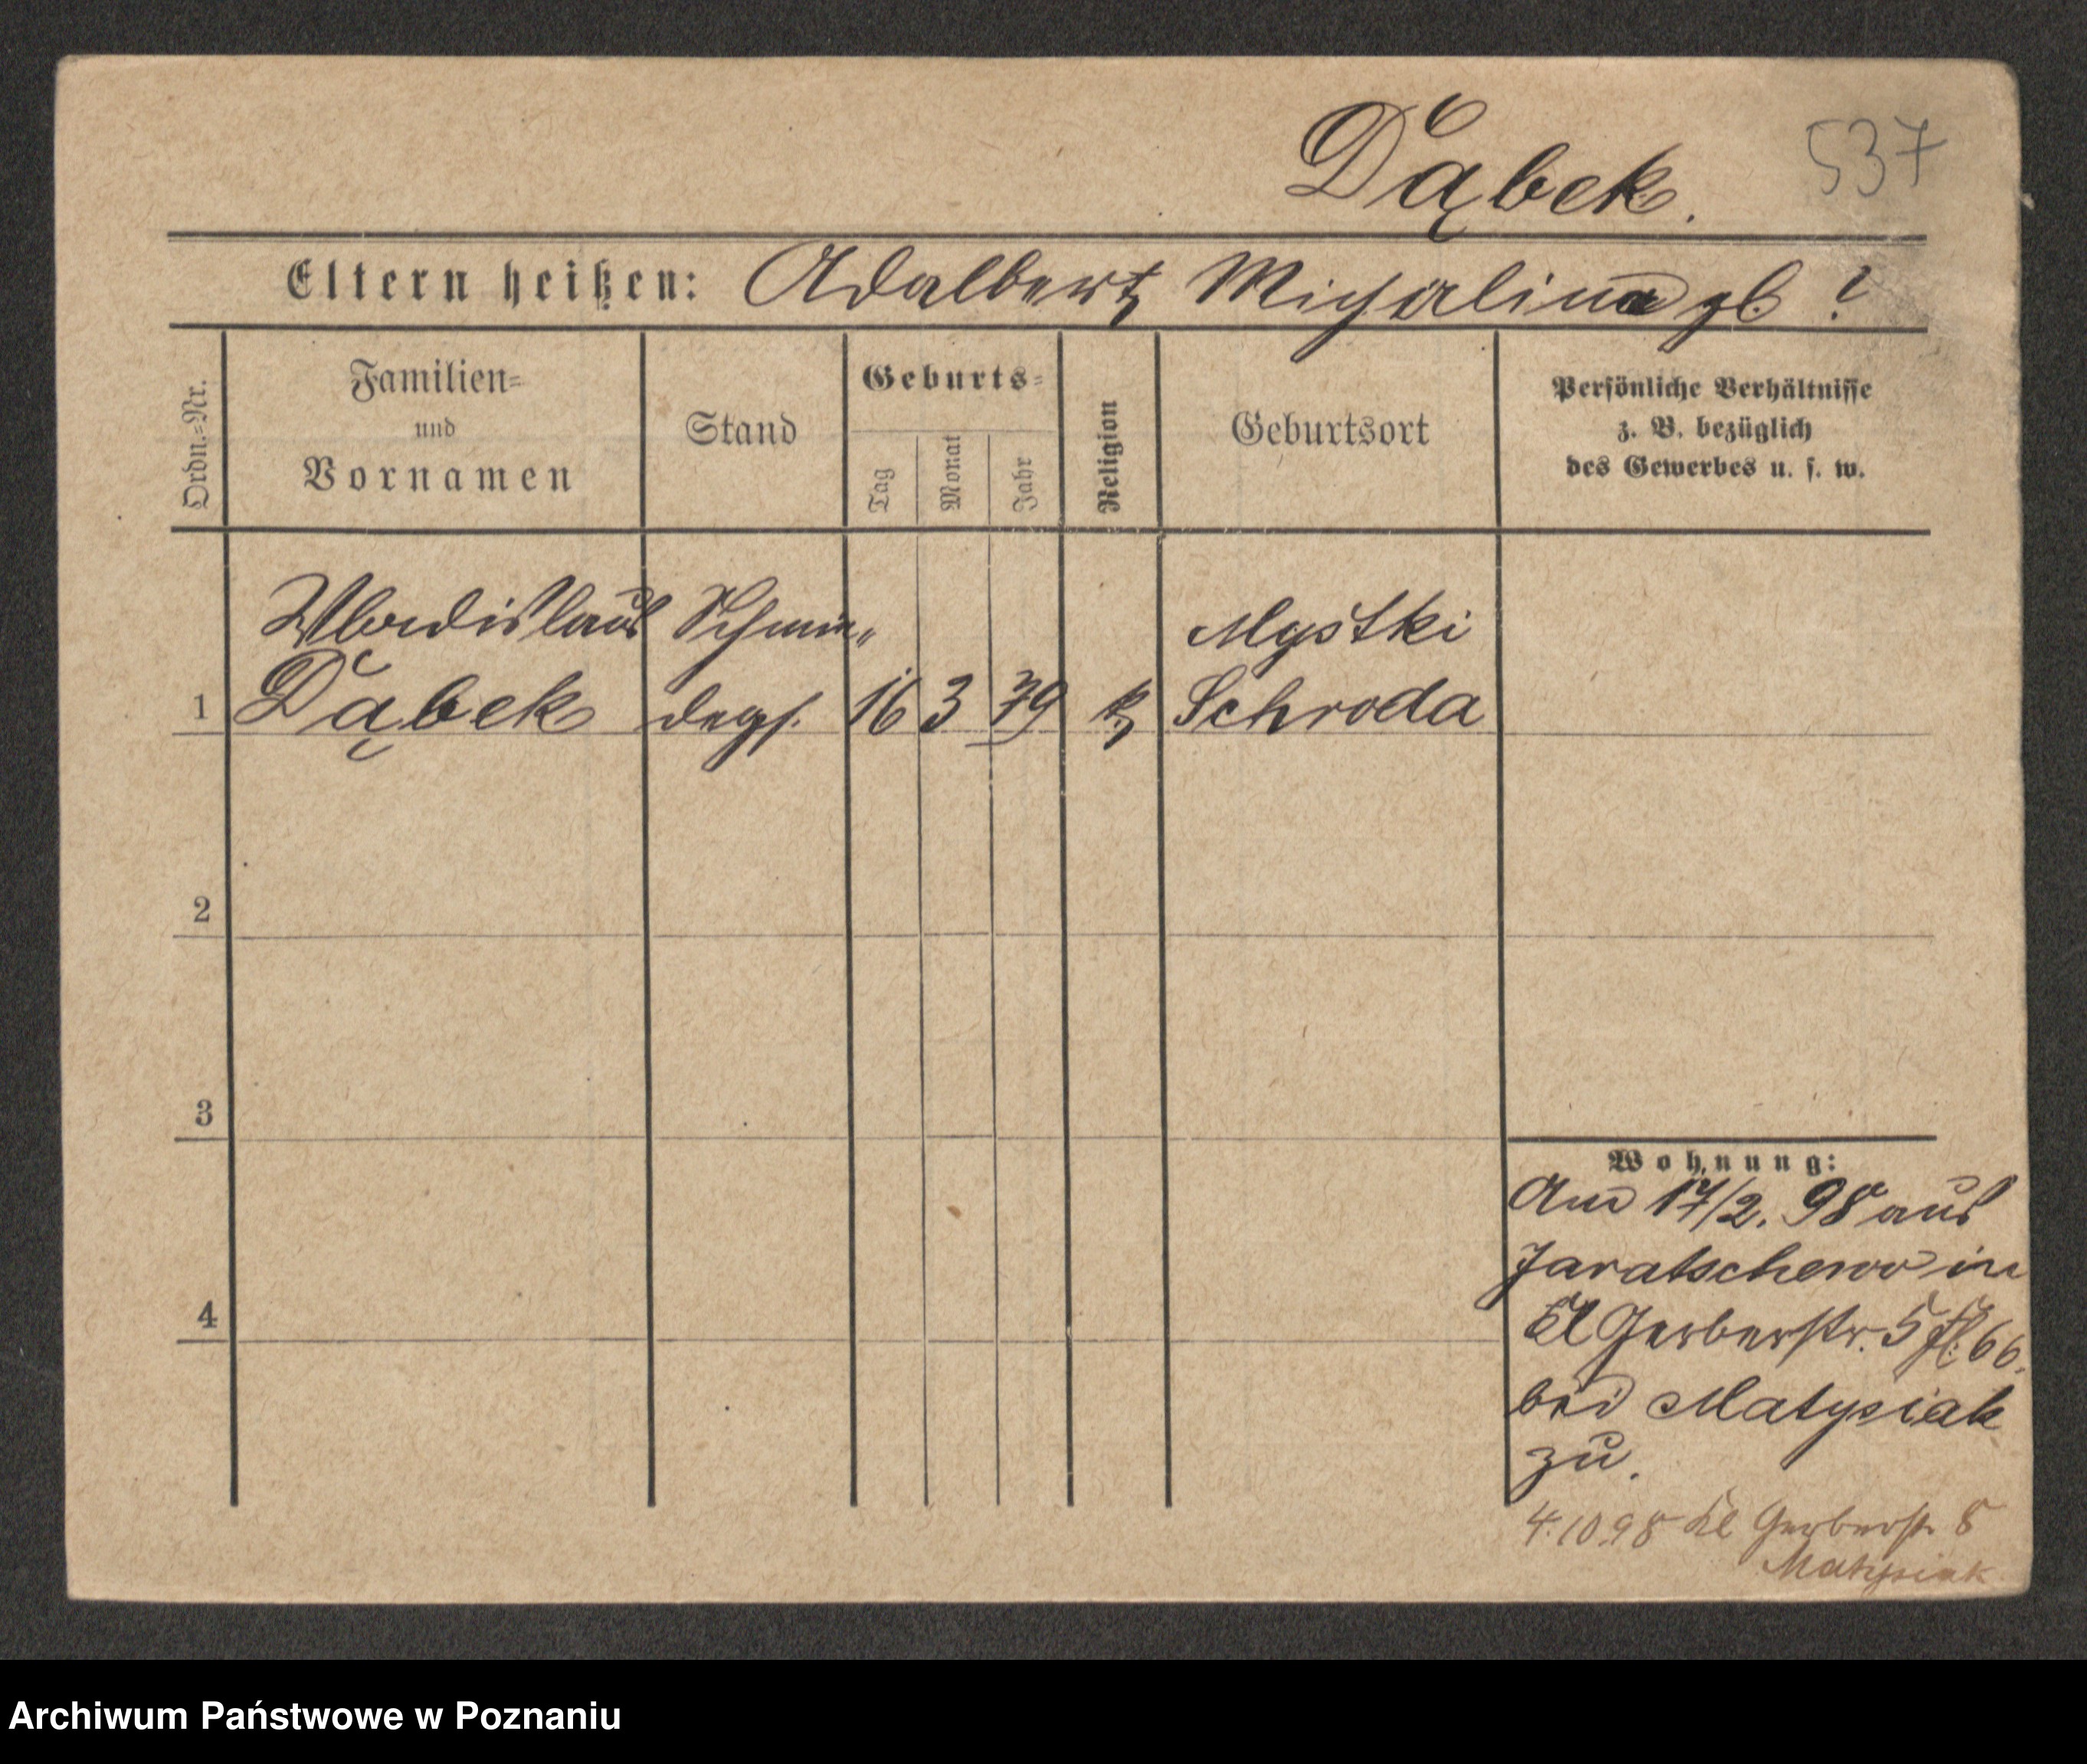 Dąbek.
537
Eltern heißen: Adalbert, Michalina gb. ?
Ordn.=Nr.
Familien=
und
Vornamen
Stand
Geburts=
Tag
Monat
Jahr
Religion
Geburtsort
Persönliche Verhältnisse
z. B. bezüglich
des Gewerbes u. s. w.
Wladislaus Schmie„ Mystki
1 Dąbek degs. 16 3 79 k. Schroda
2
3
4
Wohnung:
Am 17/2. 98 aus
Jaratschewo in
Kl Gerberstr. 5 66.
bei Matysiak
zu.
4.10.98 Kl Gerberstr 8
Matysiak
Archiwum Państwowe w Poznaniu